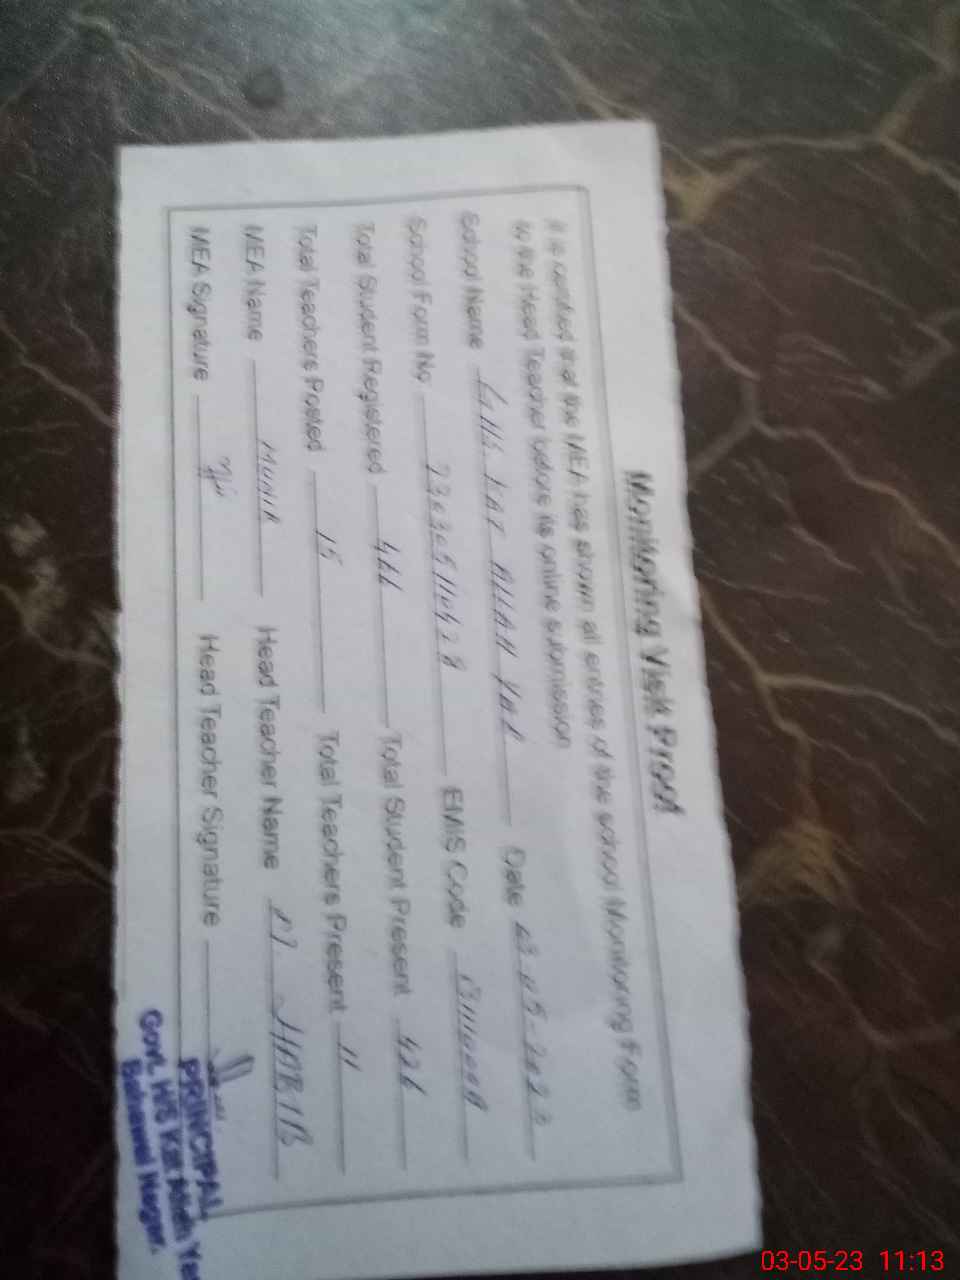 Monitoring Visit Proof
It is certified that the MEA has shown all entries of the school Monitoring Form
to the Head Teacher before its online submission
School Name Date 03-05-2023
School Form No EMIS Code
Total Student Registered 466 Total Student Present 426
Total Teachers Posted 15 Total Teachers Present 11
MEA Name MUNIR Head Teacher Name
MEA Signature Head Teacher Signature
PRINCIPAL
Govt. H/S Kot Allah Ya
Bahawal Nagar.
03-05-23 11:13